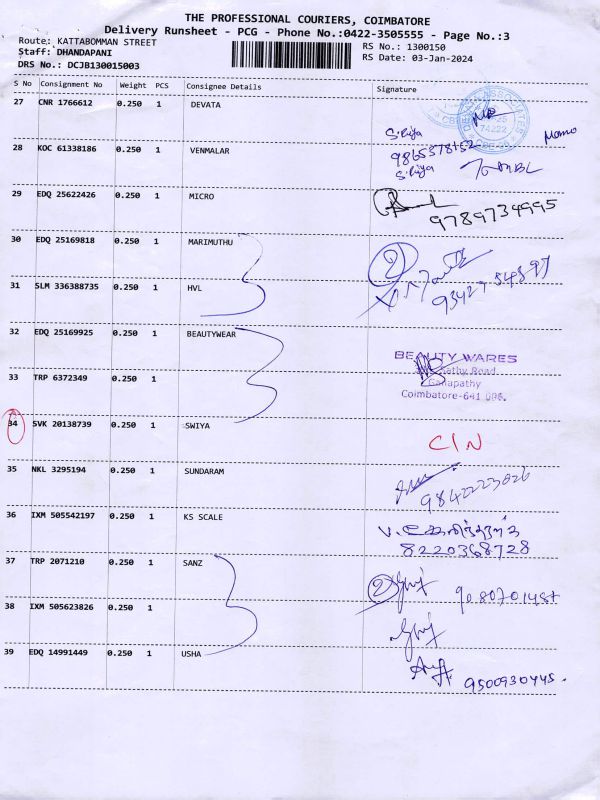 THE PROFESSIONAL COURIERS, COIMBATORE
Delivery Runsheet - PCG - Phone No.:0422-3505555 - Page No.:3
Route: KATTABOMMAN STREET
Staff: DHANDAPANI
DRS No.: DCJB130015003
RS No.: 1300150
RS Date: 03-Jan-2024
S No Consignment No Weight PCS Consignee Details Signature
27 CNR 1766612 0.250 1 DEVATA
74222
S. Riya
Momo
28 KOC 61338186 0.250 1 VENMALAR
9865578152
S. Riya
29 EDQ 25622426 0.250 1 MICRO
9789734995
30 EDQ 25169818 0.250 1 MARIMUTHU
2
31 SLM 336388735 0.250 1 HVL
93427 54897
32 EDQ 25169925 0.250 1 BEAUTYWEAR
BEAUTY WARES
Road
Ganapathy
Coimbatore-641 006.
33 TRP 6372349 0.250 1
34 SVK 20138739 0.250 1 SWIYA
C/N
35 NKL 3295194 0.250 1 SUNDARAM
9842223026
36 IXM 505542197 0.250 1 KS SCALE
8220368728
37 TRP 2071210 0.250 1 SANZ
2
38 IXM 505623826 0.250 1
39 EDQ 14991449 0.250 1 USHA
9500930445.